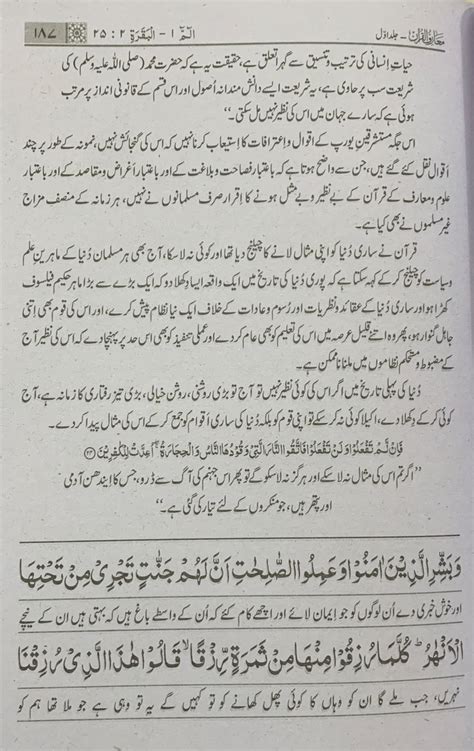 معارف القرآن - جلد اوّل الٓمّٓ ۱ - البقرۃ ۲ : ۲۵ ۱۸۷
حیاتِ انسانی کی ترتیب و تنسیق سے گہرا تعلق ہے، حقیقت یہ ہے کہ حضرت محمد (صلی اللہ علیہ وسلم) کی
شریعت سب پر حاوی ہے، یہ شریعت ایسے دانش مندانہ اُصول اور اس قسم کے قانونی انداز پر مرتب
ہوئی ہے کہ سارے جہان میں اس کی نظیر نہیں مل سکتی۔‘‘
اس جگہ مستشرقینِ یورپ کے اقوال و اعترافات کا استیعاب کرنا نہیں کہ اس کی گنجائش نہیں، نمونہ کے طور پر چند
اقوال نقل کئے گئے ہیں، جن سے واضح ہوتا ہے کہ باعتبار فصاحت و بلاغت کے اور باعتبار اَغراض و مقاصد کے اور باعتبار
علوم و معارف کے قرآن کے بے نظیر و بے مثل ہونے کا اِقرار صرف مسلمانوں نے نہیں، ہر زمانہ کے منصف مزاج
غیر مسلموں نے بھی کیا ہے۔
قرآن نے ساری دُنیا کو اپنی مثال لانے کا چیلنج دیا تھا اور کوئی نہ لا سکا، آج بھی ہر مسلمان دُنیا کے ماہرینِ علم
و سیاست کو چیلنج کر کے کہہ سکتا ہے کہ پوری دُنیا کی تاریخ میں ایک واقعہ ایسا دکھلا دو کہ ایک بڑے سے بڑا ماہر حکیم فیلسوف
کھڑا ہو اور ساری دُنیا کے عقائد و نظریات اور رُسوم و عادات کے خلاف ایک نیا نظام پیش کرے، اور اس کی قوم بھی اتنی
جاہل گنوار ہو، پھر وہ اتنے قلیل عرصہ میں اس کی تعلیم کو بھی عام کر دے اور عملی تنفیذ کو بھی اس حد پر پہنچا دے کہ اس کی نظیر آج
کے مضبوط و مستحکم نظاموں میں ملنا ناممکن ہے۔
دُنیا کی پہلی تاریخ میں اگر اس کی کوئی نظیر نہیں تو آج تو بڑی روشنی، روشن خیالی، بڑی تیز رفتاری کا زمانہ ہے، آج
کوئی کر کے دکھلا دے، اکیلا کوئی نہ کر سکے تو اپنی قوم کو بلکہ دُنیا کی ساری اَقوام کو جمع کر کے اس کی مثال پیدا کر دے۔
فَاِنْ لَّمْ تَفْعَلُوْا وَلَنْ تَفْعَلُوْا فَاتَّقُوا النَّارَ الَّتِیْ وَقُوْدُهَا النَّاسُ وَالْحِجَارَةُ ۚ اُعِدَّتْ لِلْكٰفِرِیْنَ ﴿۲۴﴾
’’اگر تم اس کی مثال نہ لا سکے اور ہرگز نہ لا سکو گے تو پھر اس جہنم کی آگ سے ڈرو، جس کا ایندھن آدمی
اور پتھر ہیں، جو منکروں کے لئے تیار کی گئی ہے۔‘‘
وَبَشِّرِ الَّذِیْنَ اٰمَنُوْا وَعَمِلُوا الصّٰلِحٰتِ اَنَّ لَهُمْ جَنّٰتٍ تَجْرِیْ مِنْ تَحْتِهَا
اور خوش خبری دے اُن لوگوں کو جو ایمان لائے اور اچھے کام کئے کہ اُن کے واسطے باغ ہیں کہ بہتی ہیں ان کے نیچے
الْاَنْهٰرُ ؕ كُلَّمَا رُزِقُوْا مِنْهَا مِنْ ثَمَرَةٍ رِّزْقًا ۙ قَالُوْا هٰذَا الَّذِیْ رُزِقْنَا
نہریں، جب ملے گا ان کو وہاں کا کوئی پھل کھانے کو تو کہیں گے یہ تو وہی ہے جو ملا تھا ہم کو